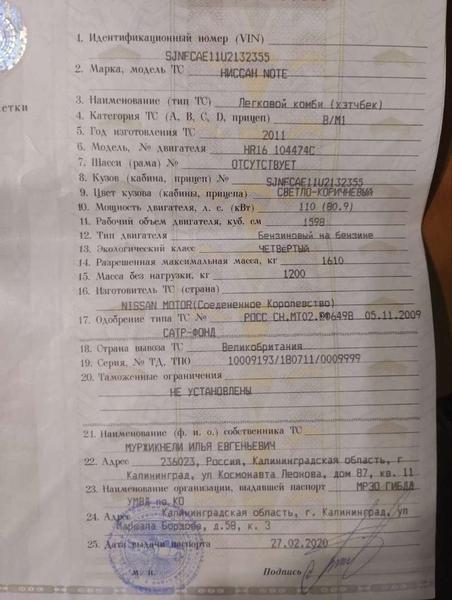 етки
1. Идентификационный номер (VIN)
SJNFCAE11U2132355
2. Марка, модель ТС НИССАН NOTE
3. Наименование (тип ТС) Легковой комби (хэтчбек)
4. Категория ТС (A, B, C, D, прицеп) B/M1
5. Год изготовления ТС 2011
6. Модель, № двигателя HR16 104474C
7. Шасси (рама) № ОТСУТСТВУЕТ
8. Кузов (кабина, прицеп) № SJNFCAE11U2132355
9. Цвет кузова (кабины, прицепа) СВЕТЛО-КОРИЧНЕВЫЙ
10. Мощность двигателя, л. с. (кВт) 110 (80.9)
11. Рабочий объем двигателя, куб. см 1598
12. Тип двигателя Бензиновый на бензине
13. Экологический класс ЧЕТВЕРТЫЙ
14. Разрешенная максимальная масса, кг 1610
15. Масса без нагрузки, кг 1200
16. Изготовитель ТС (страна)
NISSAN MOTOR(Соедененное Королевство)
17. Одобрение типа ТС № РОСС CH.MT02. 05.11.2009
САТР-ФОНД
18. Страна вывоза ТС Великобритания
19. Серия, № ТД, ТПО 10009193/180711/0009999
20. Таможенные ограничения
НЕ УСТАНОВЛЕНЫ
21. Наименование (ф. и. о.) собственника ТС
МУРЖИКНЕЛИ ИЛЬЯ ЕВГЕНЬЕВИЧ
22. Адрес 236023, Россия, Калининградская область, г
Калининград, ул Космонавта Леонова, дом 87, кв. 11
23. Наименование организации, выдавшей паспорт МРЭО ГИБДД
УМВД по КО
24. Адрес Калининградская область, г. Калининград, ул
Маршала Борзова, д.58, к. 3
25. Дата выдачи паспорта 27.02.2020
М. П. Подпись